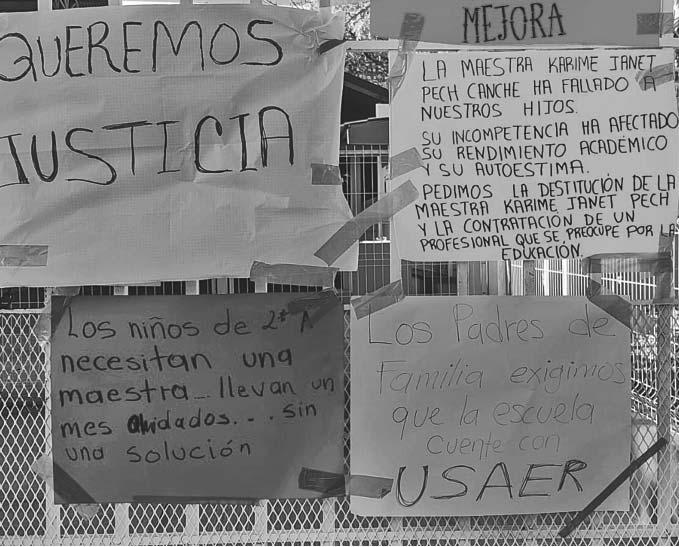 QUEREMOS
JUSTICIA
MEJORA
LA MAESTRA KARIME JANET
PECH CANCHE HA FALLADO A
NUESTROS HIJOS.
SU INCOMPETENCIA HA AFECTADO
SU RENDIMIENTO ACADÉMICO
Y SU AUTOESTIMA.
PEDIMOS LA DESTITUCIÓN DE LA
MAESTRA KARIME JANET PECH
Y LA CONTRATACIÓN DE UN
PROFESIONAL QUE SE PREOCUPE POR LA
EDUCACIÓN.
Los niños de 2° A
necesitan una
maestra... llevan un
mes olvidados... sin
una solución
Los Padres de
Familia exigimos
que la escuela
cuente con
USAER